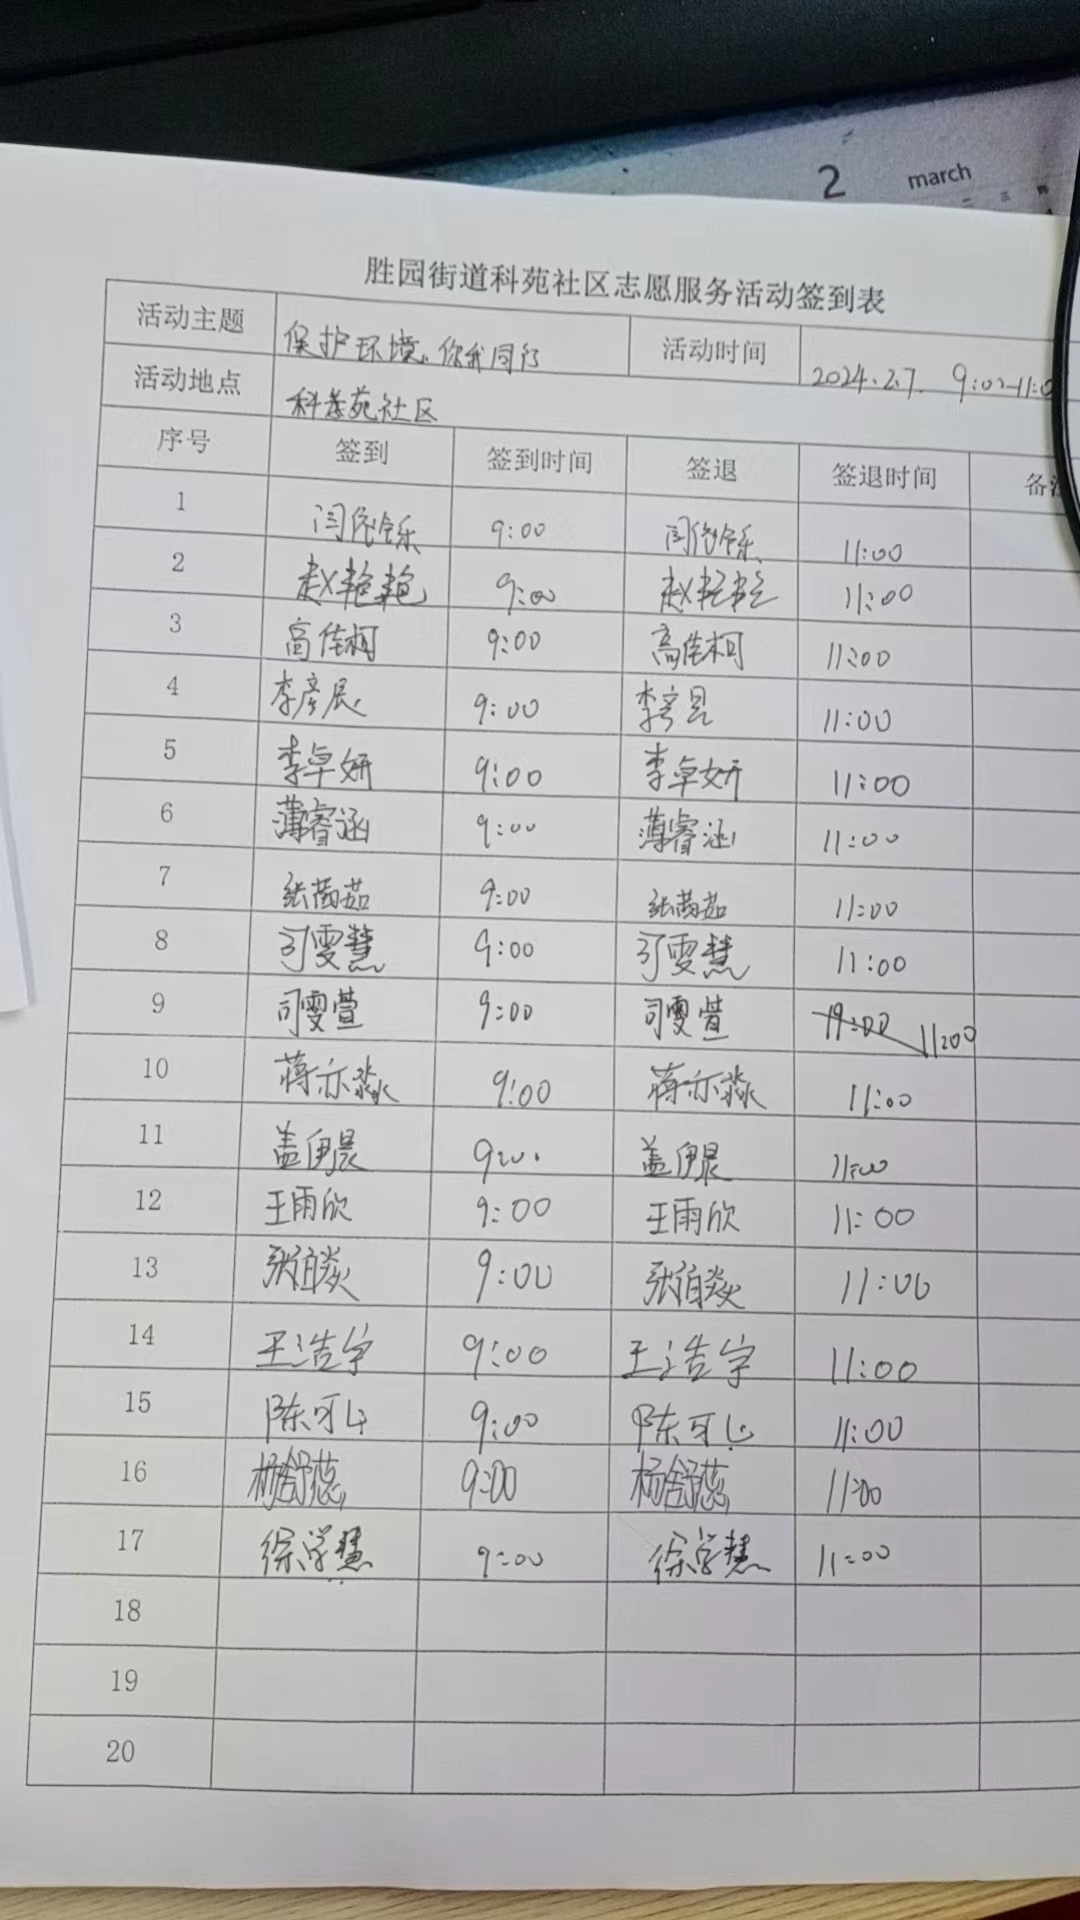 2 march
二 三
胜园街道科苑社区志愿服务活动签到表
活动主题 保护环境,你我同行 活动时间 2024.2.7. 9:00-11:0
活动地点 科苑社区
序号 签到 签到时间 签退 签退时间 备注
1 9:00 11:00
2 赵艳艳 9:00 赵艳艳 11:00
3 高佳柯 9:00 高佳柯 11:00
4 李彦辰 9:00 11:00
5 李卓妍 9:00 李卓妍 11:00
6 薄睿涵 9:00 薄睿涵 11:00
7 张茜茹 9:00 张茜茹 11:00
8 司雯慧 9:00 司雯慧 11:00
9 司雯萱 9:00 司雯萱 11:00
10 蒋亦淼 9:00 蒋亦淼 11:00
11 盖伊晨 9:00 盖伊晨 11:00
12 王雨欣 9:00 王雨欣 11:00
13 张珀焱 9:00 张珀焱 11:00
14 王浩宇 9:00 王浩宇 11:00
15 9:00 11:00
16 杨舒蕊 9:00 杨舒蕊 11:00
17 徐学慧 9:00 徐学慧 11:00
18
19
20